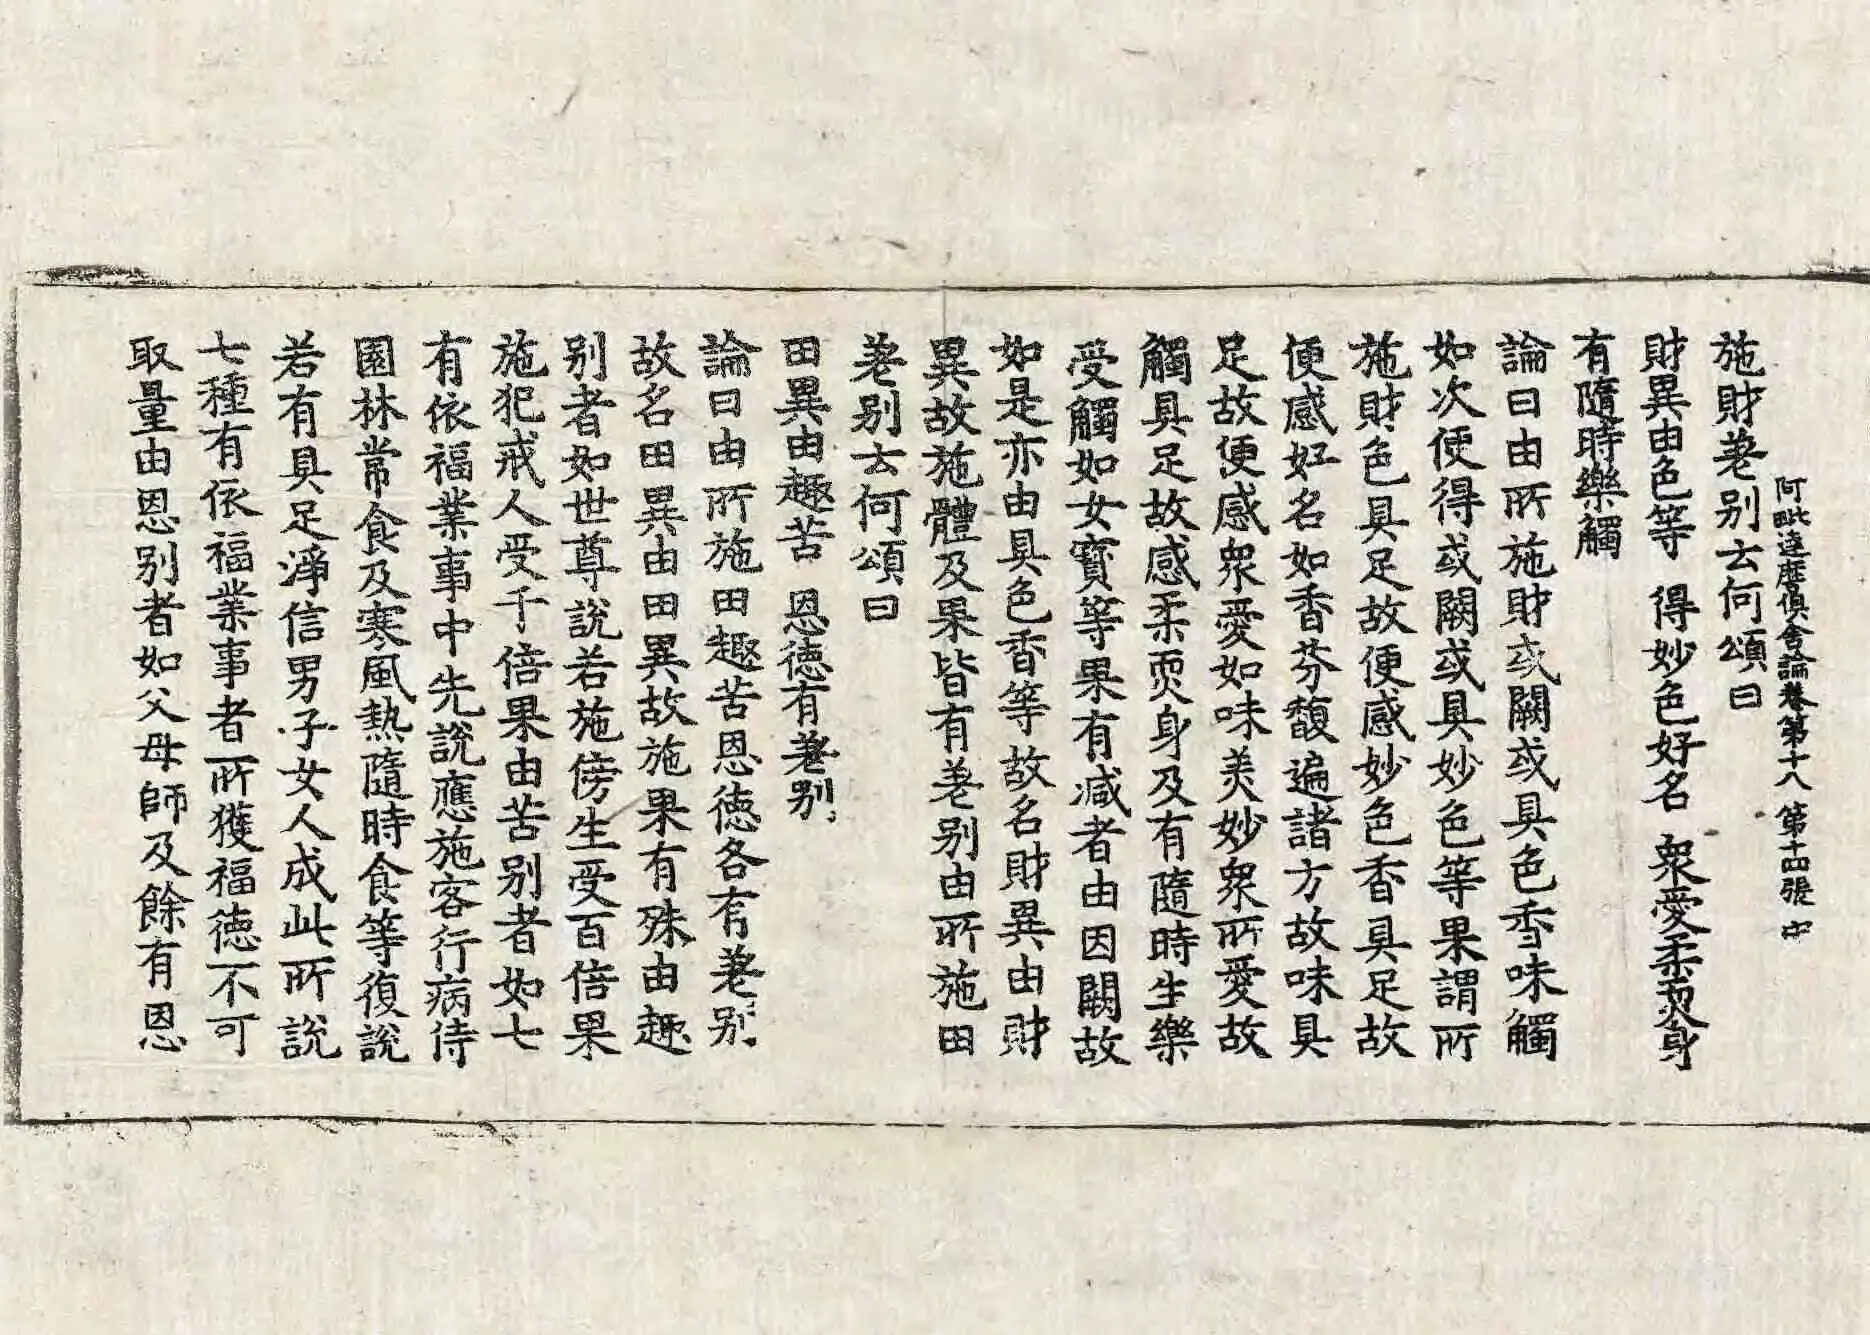 阿毗達磨俱舍論卷第十八 第十四張 中
施財差别云何頌曰
財異由色等 得妙色好名 衆愛柔耎身
有隨時樂觸
論曰由所施財或闕或具色香味觸
如次便得或闕或具妙色等果謂所
施財色具足故便感妙色香具足故
便感好名如香芬馥遍諸方故味具
足故便感衆愛如味美妙衆所愛故
觸具足故感柔耎身及有隨時生樂
受觸如女寶等果有減者由因闕故
如是亦由具色香等故名財異由財
異故施體及果皆有差别由所施田
差别云何頌曰
田異由趣苦 恩德有差别
論曰由所施田趣苦恩德各有差别
故名田異由田異故施果有殊由趣
别者如世尊說若施傍生受百倍果
施犯戒人受千倍果由苦别者如七
有依福業事中先說應施客行病侍
園林常食及寒風熱隨時食等復說
若有具足淨信男子女人成此所說
七種有依福業事者所獲福德不可
取量由恩别者如父母師及餘有恩